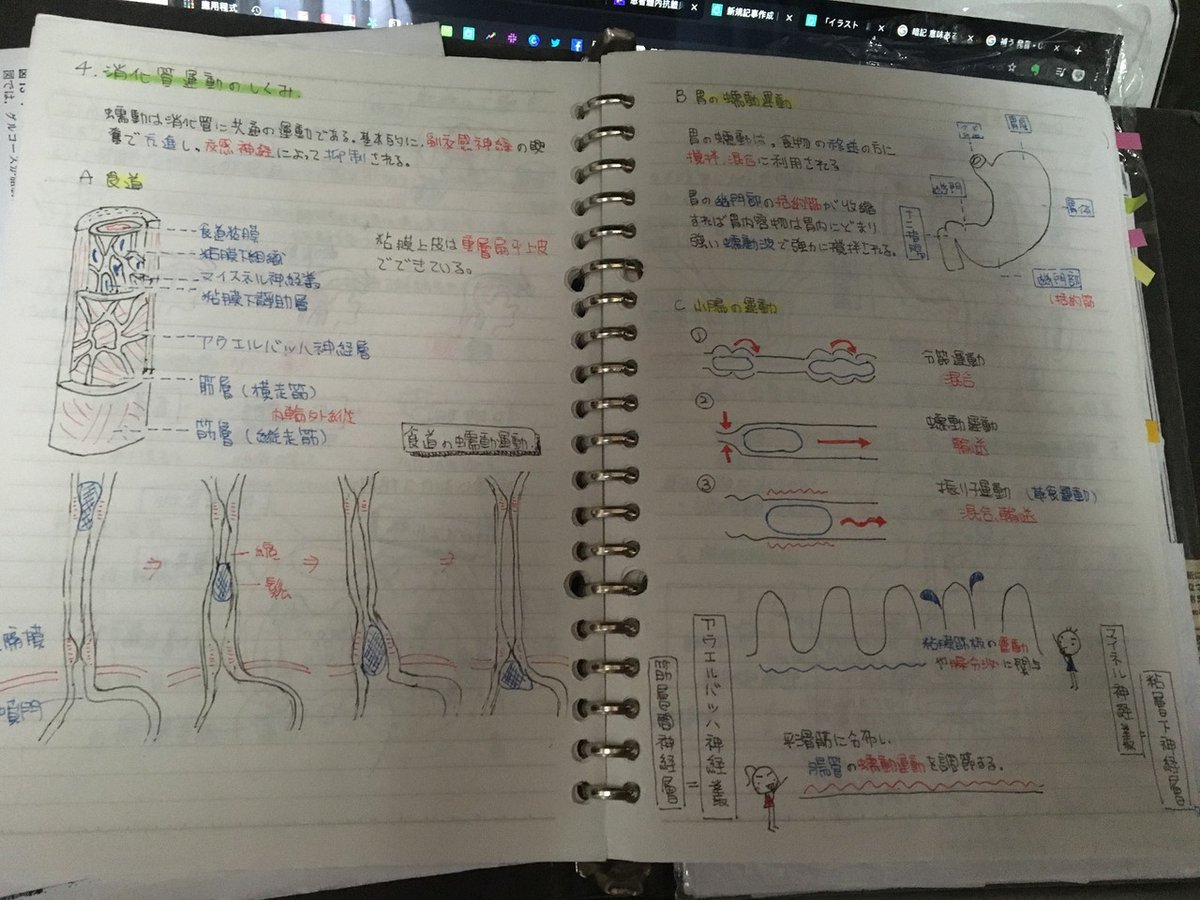 應用程式
新規記事作成
「イラスト
暗記 意味ある
4. 消化管運動のしくみ
蠕動は消化管に共通の運動である。基本的に、副交感神経の興
奮で亢進し、交感神経によって抑制される。
A 食道
食道粘膜
粘膜下組織
マイスネル神経叢
粘膜下
アウエルバッハ神経層
筋層(横走筋)
内輪外縦性
筋層(縦走筋)
粘膜上皮は重層扁平上皮
でできている。
食道の蠕動運動
横隔膜
噴門
B 胃の蠕動運動
胃の蠕動は、食物の移送の他に
攪拌、混合に利用される
胃の幽門部の括約筋が収縮
すれば胃内容物は胃内にとどまり
強い蠕動波で強力に攪拌される。
噴門
胃底
幽門
胃体
十二指腸
幽門部
括約筋
C 小腸の運動
①
分節運動
混合
②
蠕動運動
輸送
③
振り子運動
混合、輸送
粘膜筋板の運動
や腺分泌に関与
マイネル神経叢
=
粘層下神経層
アウエルバッハ神経叢
=
筋層間神経層
平滑筋に分布し、
腸管の蠕動運動を調節する。